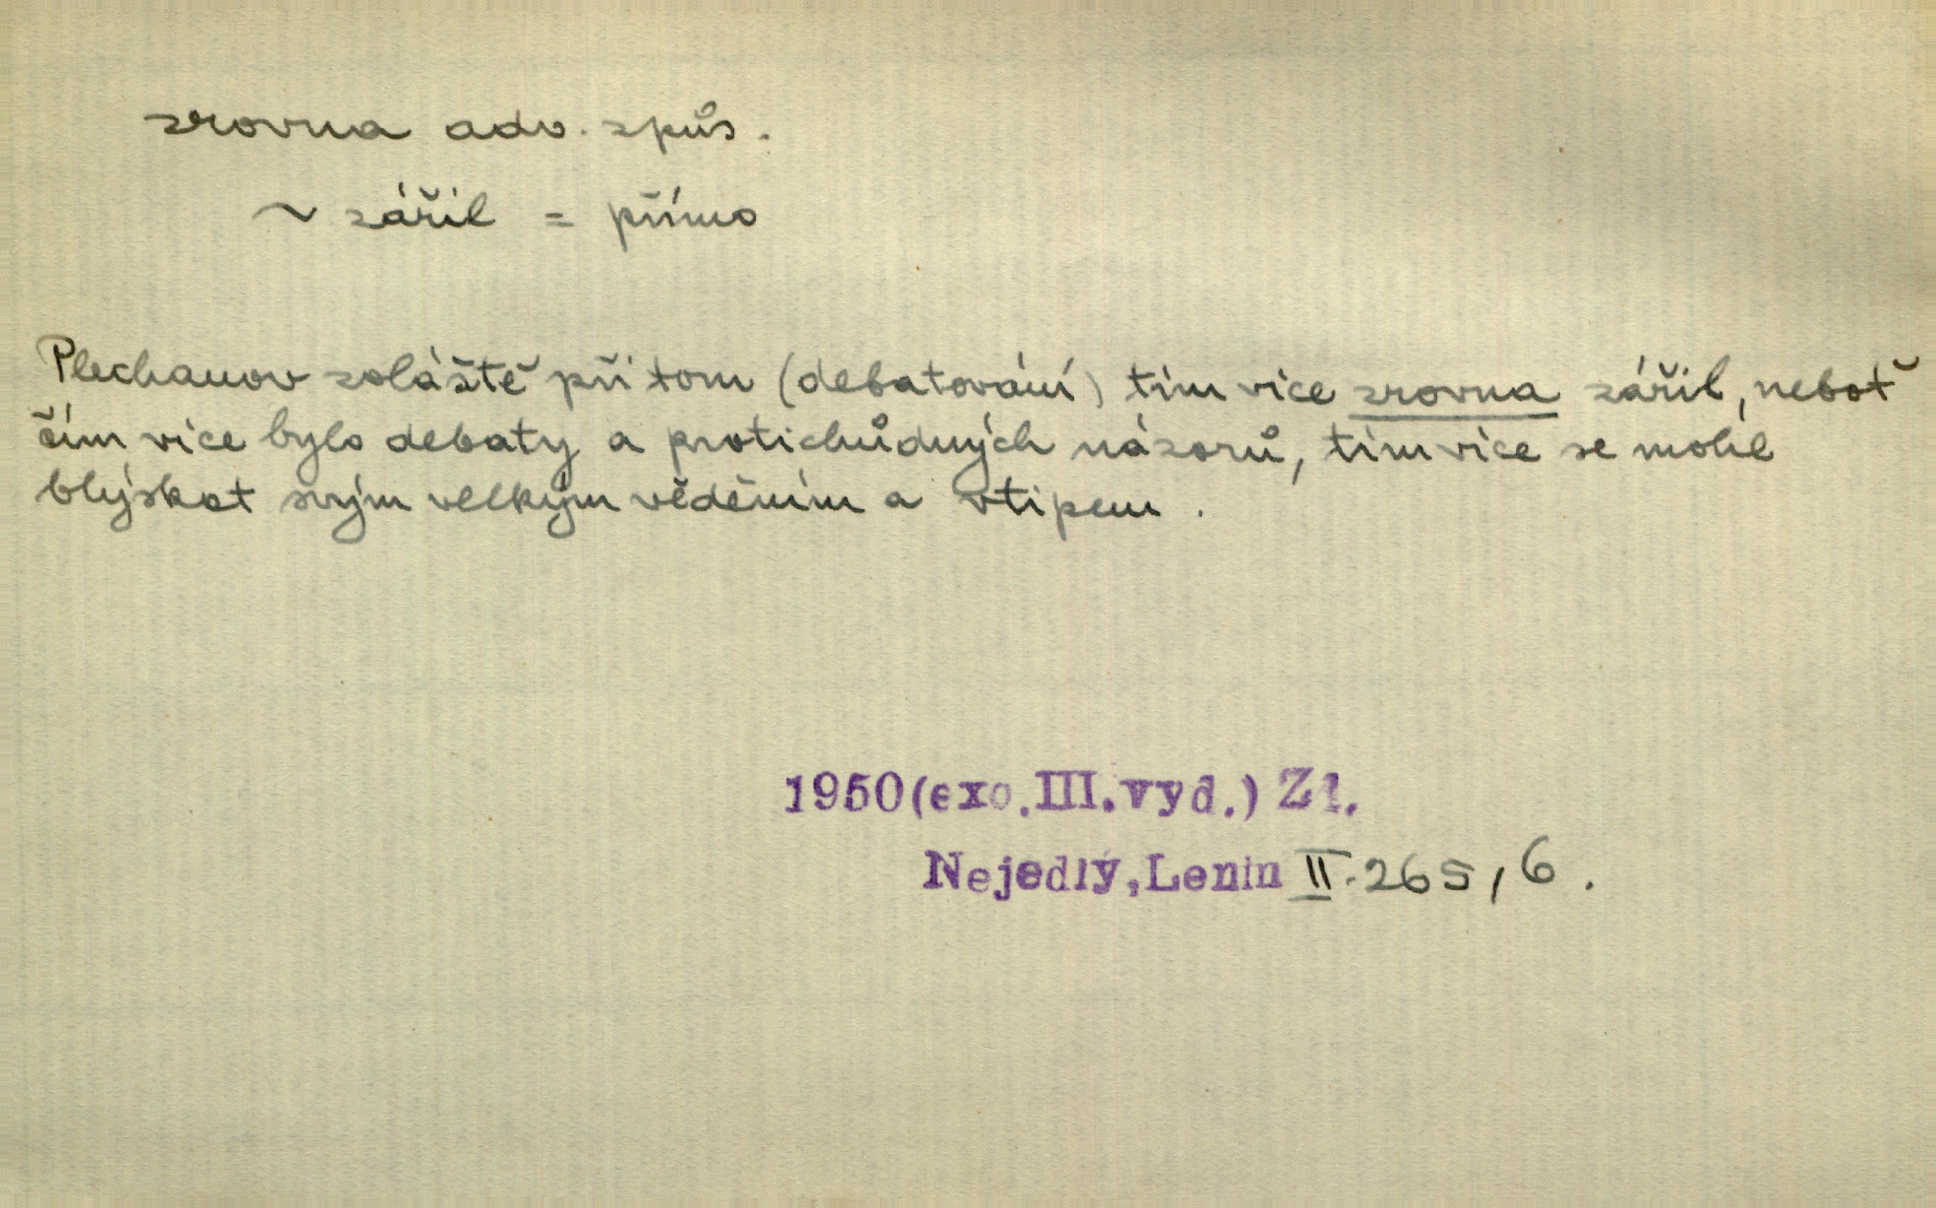 zrovna adv. způs.
~ zářil = přímo
Plechanov zvláště při tom (debatování) tím více zrovna zářil, neboť
čím více bylo debaty a protichůdných názorů, tím více se mohl
blýskat svým velkým věděním a vtipem.
1950(exc.III.vyd.) Zl.
Nejedlý, Lenin II. 265, 6.